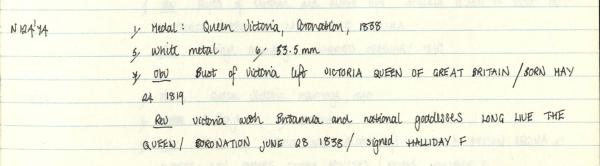 N124'74 1/ Medal: Queen Victoria, Coronation, 1838
5/ White metal 6/ 53.5 mm
7/ Obv Bust of Victoria left VICTORIA QUEEN OF GREAT BRITAIN / BORN MAY
24 1819
Rev Victoria with Britannia and national goddesses LONG LIVE THE
QUEEN / CORONATION JUNE 28 1838 / signed HALLIDAY F